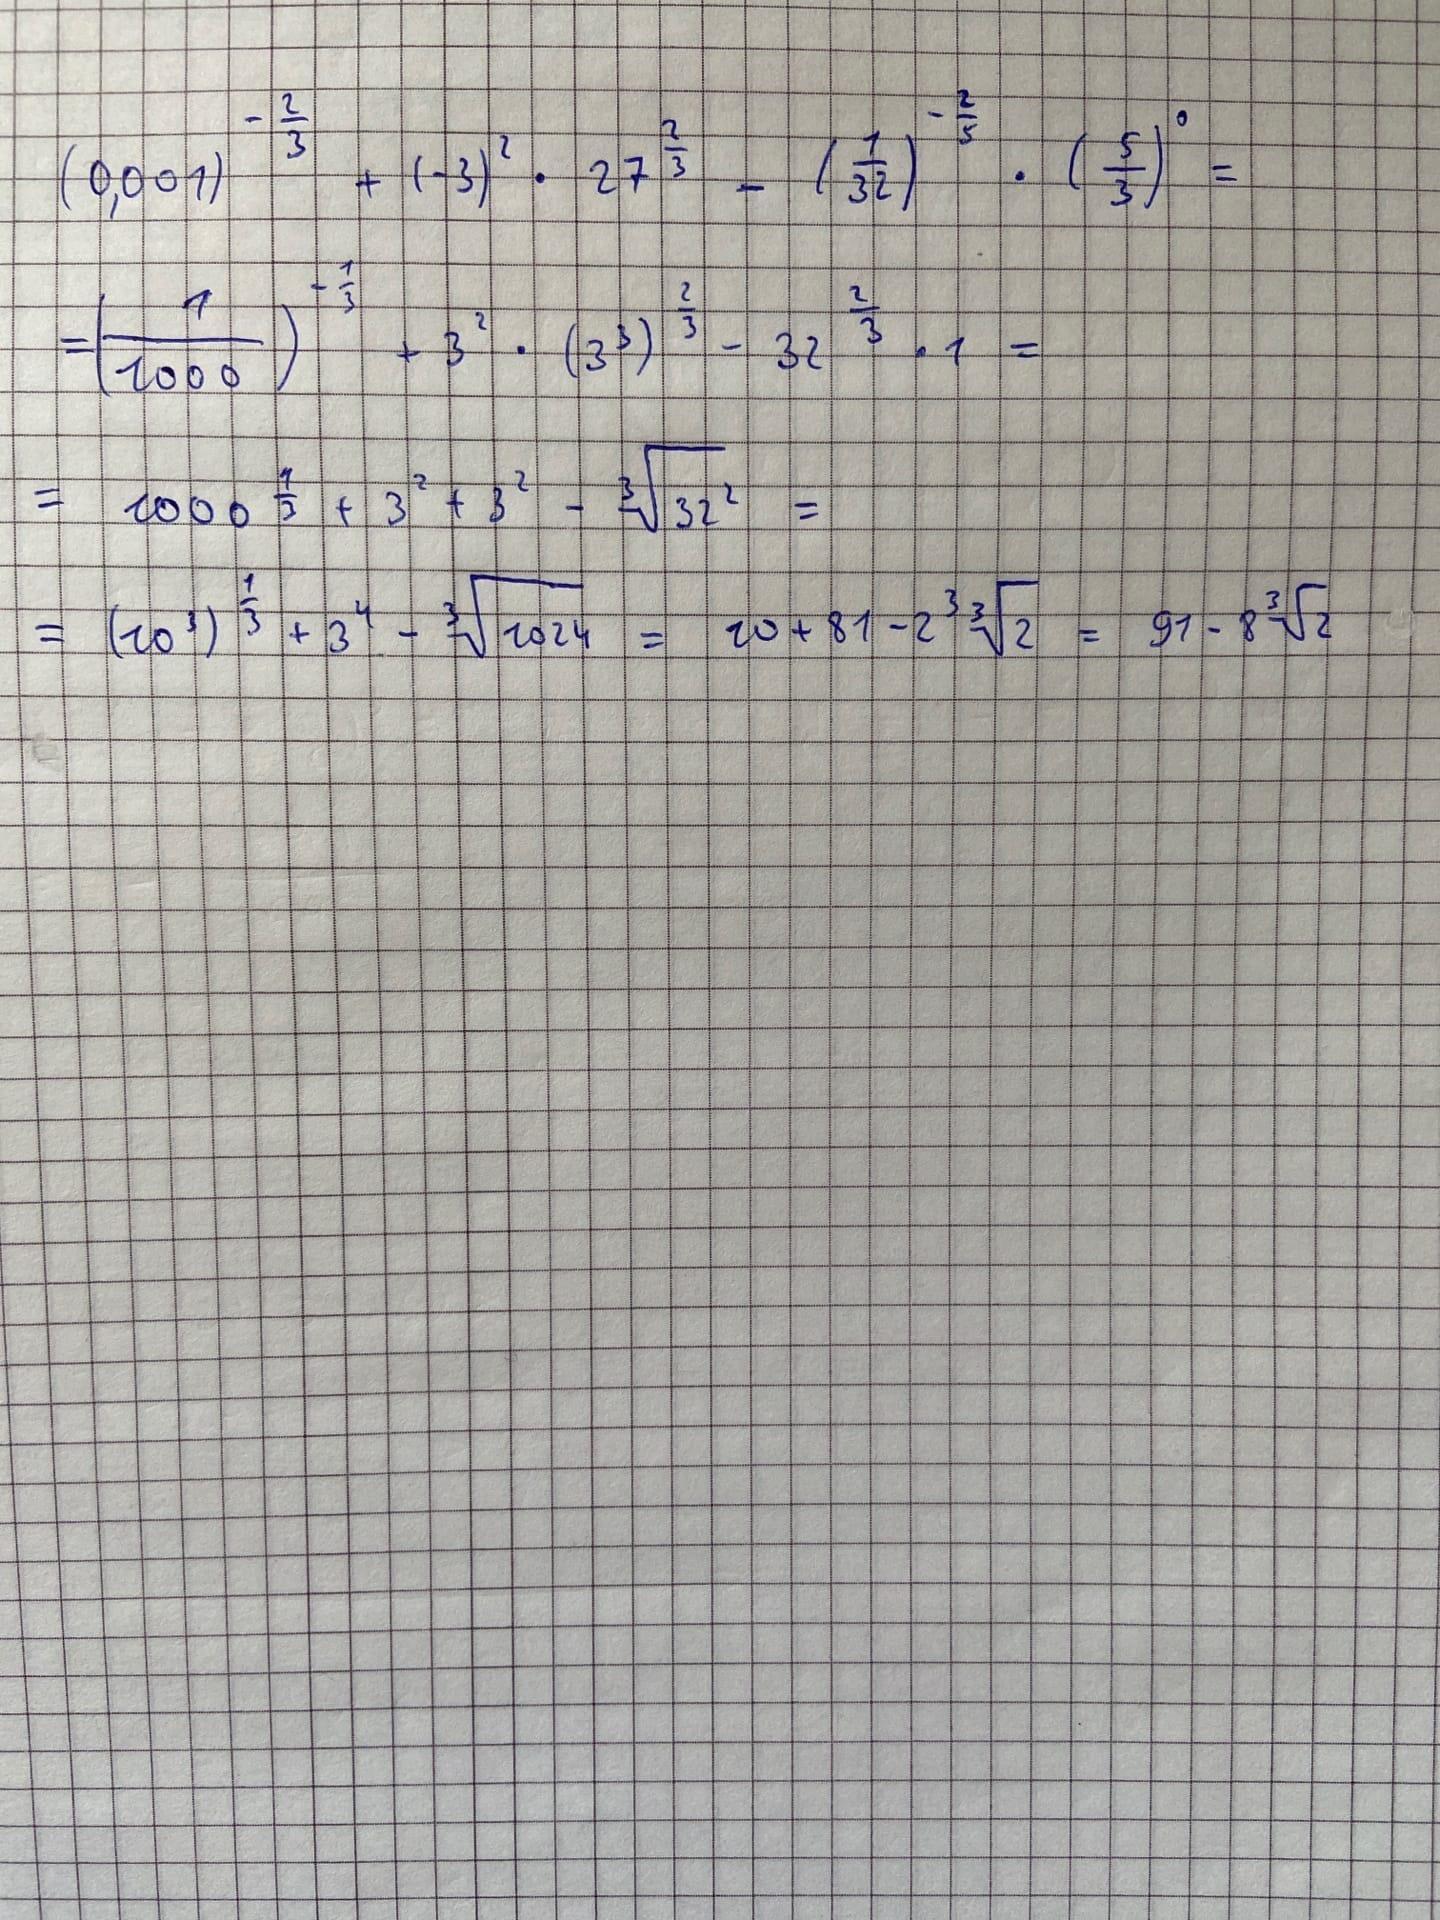 (0,001)^(-2/3) + (-3)² · 27^(2/3) - (1/32)^(-2/5) · (5/3)⁰ =
= (1/1000)^(-1/3) + 3² · (3³)^(2/3) - 32^(2/3) · 1 =
= 1000^(1/3) + 3² + 3² - ³√32² =
= (10³)^(1/3) + 3⁴ - ³√1024 = 10 + 81 - 2³ ³√2 = 91 - 8 ³√2